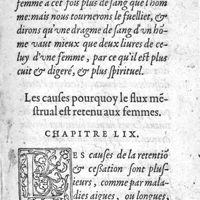 femme a cet fois plus de sang que l'hom
me: mais nous tournerons le fueillet, &
dirons qu'vne dragme de sang d'vn hom
me vaut mieux que deux liures de ce-
luy d'vne femme, par ce qu'il est plus
cuit & digeré, & plus spirituel.
Les causes pourquoy le flux mē-
strual est retenu aux femmes.
CHAPITRE LIX.
LES causes de la retentiō
& cessation sont plus-
ieurs, comme par mala-
dies aigues, ou longues,